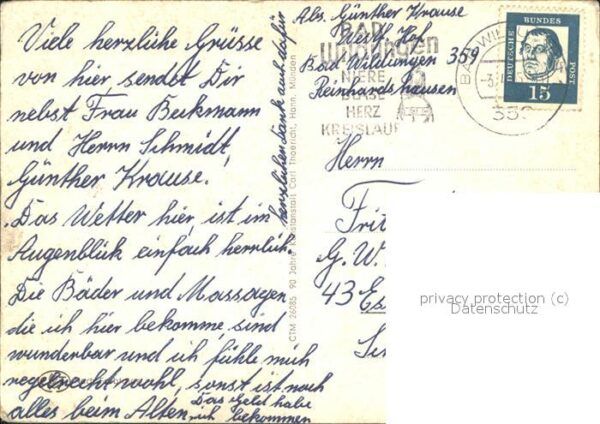 Viele herzliche Grüsse
von hier sendet Dir
nebst Frau Beckmann
und Herrn Schmidt,
Günther Krause.
Das Wetter hier ist im
Augenblick einfach herrlich.
Die Bäder und Massagen
die ich hier bekomme, sind
wunderbar und ich fühle mich
regelrecht wohl, sonst ist noch
alles beim Alten,
Das Geld habe
ich bekommen
herzlichen Dank auch dafür
CTM 26085 90 Jahre Kunstanstalt Carl Thoericht, Hann. Münden
Abs. Günther Krause
Bad Wildungen 359
Reinhardshausen
BAD
Wildungen
NIERE
BLASE
HERZ
KREISLAUF
DEUTSCHE BUNDESPOST
15
Herrn
Frit
G. W.
43 Es
privacy protection (c)
Datenschutz